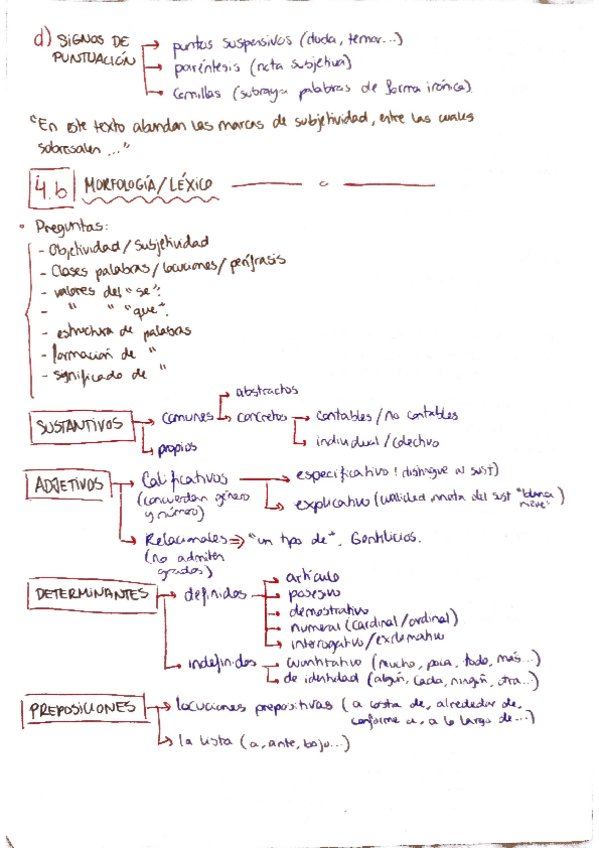 d) SIGNOS DE PUNTUACIÓN → puntos suspensivos (duda, temor...)
→ paréntesis (nota subjetiva)
→ Comillas (subraya palabras de forma irónica)
"En este texto abundan las marcas de subjetividad, entre las cuales
sobresalen ..."
4.b MORFOLOGÍA/LÉXICO
• Preguntas:
- Objetividad/Subjetividad
- Clases palabras/locuciones/perífrasis
- valores del "se".
- " " "que".
- estructura de palabras
- formación de "
- significado de "
SUSTANTIVOS → comunes → abstractos
→ concretos → contables/no contables
→ individual/colectivo
→ propios
ADJETIVOS → Calificativos → especificativo: distingue al sust)
(concuerdan género y número)
→ explicativo (cualidad innata del sust "blanca nieve")
→ Relacionales ⇒ "un tipo de". Gentilicios.
(no admiten grados)
DETERMINANTES → definidos → artículo
→ posesivo
→ demostrativo
→ numeral (cardinal/ordinal)
→ interrogativo/exclamativo
→ indefinidos → cuantitativo (mucho, poca, todo, más...)
→ de identidad (algún, cada, ningún, otra...)
PREPOSICIONES → locuciones prepositivas (a costa de, alrededor de,
conforme a, a lo largo de...)
→ la lista (a, ante, bajo...)